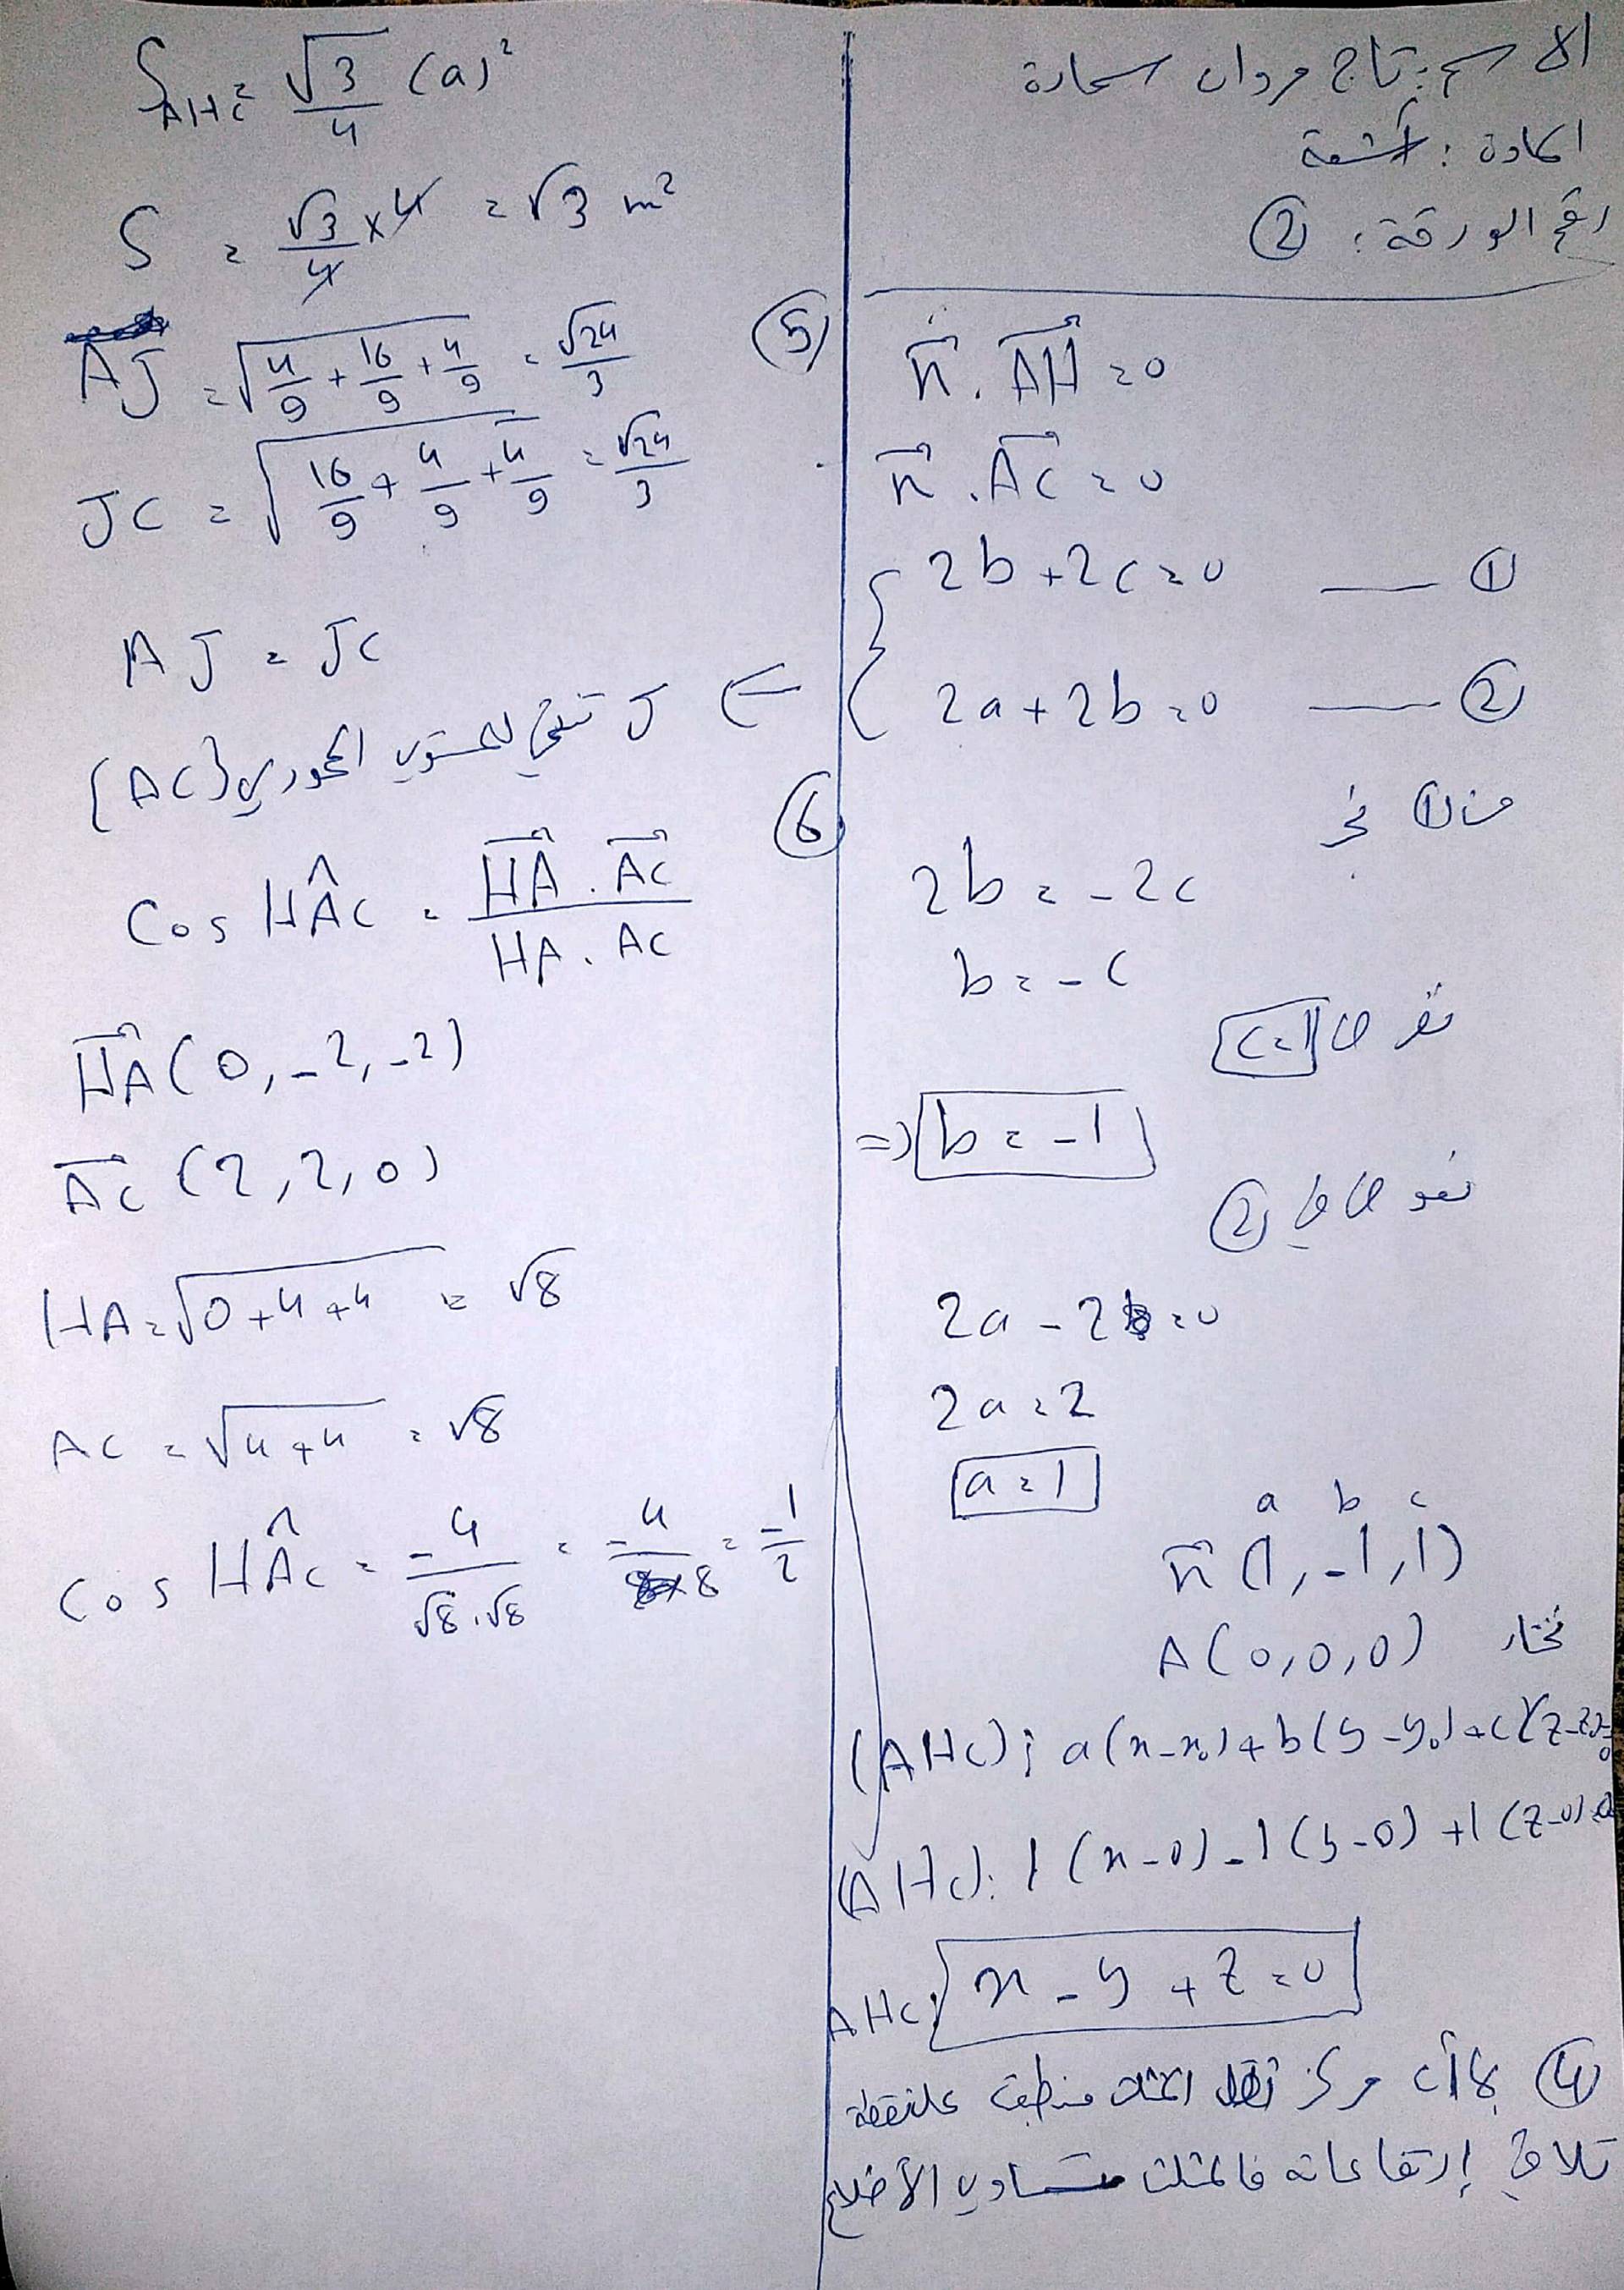 الاسم: تاج مروان سحارة
المادة: أشعة
رقم الورقة: ②
n⃗ . AH⃗ = 0
n⃗ . AC⃗ = 0
{ 2b + 2c = 0 — ①
2a + 2b = 0 — ②
من ① نجد
2b = -2c
b = -c
نفرض c=1
=> b = -1
نعوض في ②
2a - 2 = 0
2a = 2
a = 1
a b c
n⃗ (1, -1, 1)
نختار A(0,0,0)
(AHC): a(x-x₀) + b(y-y₀) + c(z-z₀)=0
(AHC): 1(x-0) -1(y-0) +1(z-0)=0
AHC: x - y + z = 0
④ بما أن مركز ثقل المثلث منطبق عل نقطة
تلاقي إرتفاعاته فالمثلث متساوي الأضلاع
S AHC = √3/4 (a)²
S = √3/4 × 4 = √3 m²
⑤ AJ = √(4/9 + 16/9 + 4/9) = √24/3
JC = √(16/9 + 4/9 + 4/9) = √24/3
AJ = JC
<= J تنتمي للمستوي المحوري [AC]
⑥ Cos HÂC = HA⃗ . AC⃗ / HA . AC
HA⃗ (0, -2, -2)
AC⃗ (2, 2, 0)
HA = √(0+4+4) = √8
AC = √(4+4) = √8
Cos HÂC = -4/√8.√8 = -4/8 = -1/2